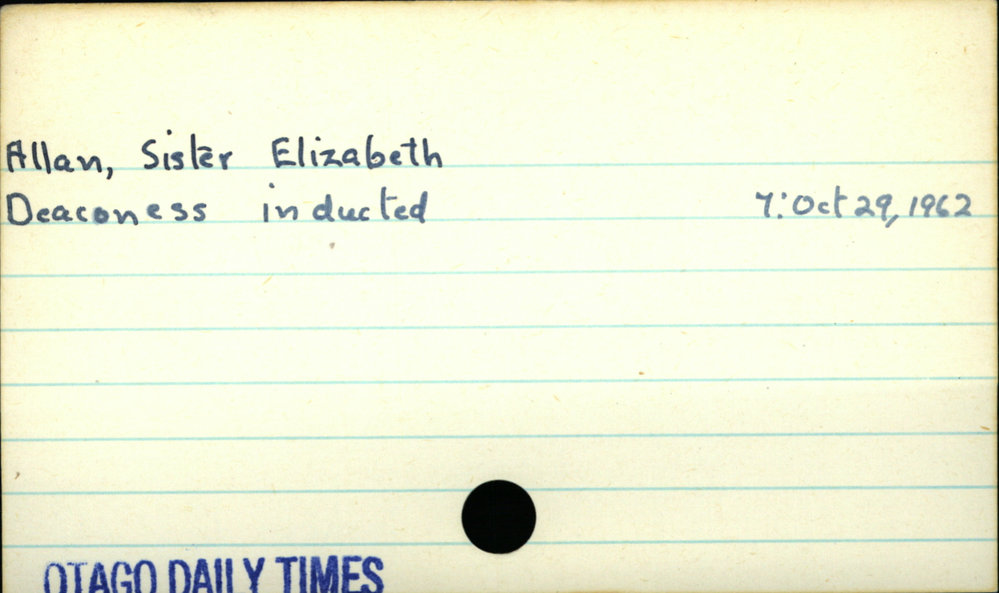 Allan, Sister Elizabeth
Deaconess inducted 7: Oct 29, 1962
OTAGO DAILY TIMES